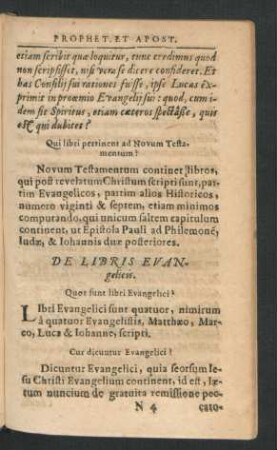 PROPHET. ET APOST.
etiam scribit quæ loquitur, tunc credimus quod
non scripsisset, nisi vera se dicere confideret. Et
has Consilij sui rationes fuisse, ipse Lucas ex-
primit in proœmio Evangelij sui: quod, cum i-
dem sit Spiritus, etiam cæteros spectasse, quis
est qui dubitet?
Qui libri pertinent ad Novum Testa-
mentum?
Novum Testamentum continet libros,
qui post revelatum Christum scripti sunt, par-
tim Evangelicos, partim alios Historicos,
numero viginti & septem, etiam minimos
computando, qui unicum saltem capitulum
continent, ut Epistola Pauli ad Philemonẽ,
Iudæ, & Iohannis duæ posteriores.
DE LIBRIS EVAN-
gelicis.
Quot sunt libri Evangelici?
LIbri Evangelici sunt quatuor, nimirum
à quatuor Evangelistis, Matthæo, Mar-
co, Luca & Iohanne, scripti.
Cur dicuntur Evangelici?
Dicuntur Evangelici, quia seorsum Ie-
su Christi Evangelium continent, id est, læ-
tum nuncium de gratuita remissione pec-
N 4
cato-